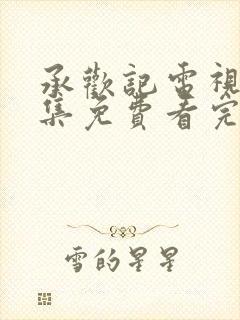 承歡記電視
集免費看完
雪的星星